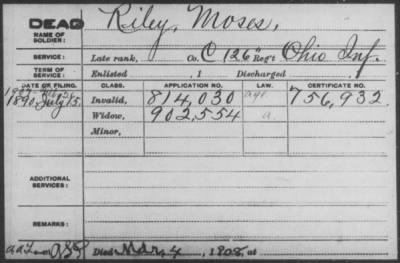 DEAD Riley, Moses,
NAME OF
SOLDIER:
SERVICE: Late rank, Co. C 126" Reg't Ohio Inf.
TERM OF
SERVICE: Enlisted , 1 Discharged , 1
DATE OF FILING. CLASS. APPLICATION NO. LAW. CERTIFICATE NO.
1890, July 15, Invalid, 814,030 756,932
Widow, 902,554 a
Minor,
ADDITIONAL
SERVICES:
REMARKS:
Died Mar. 4, 1908, at